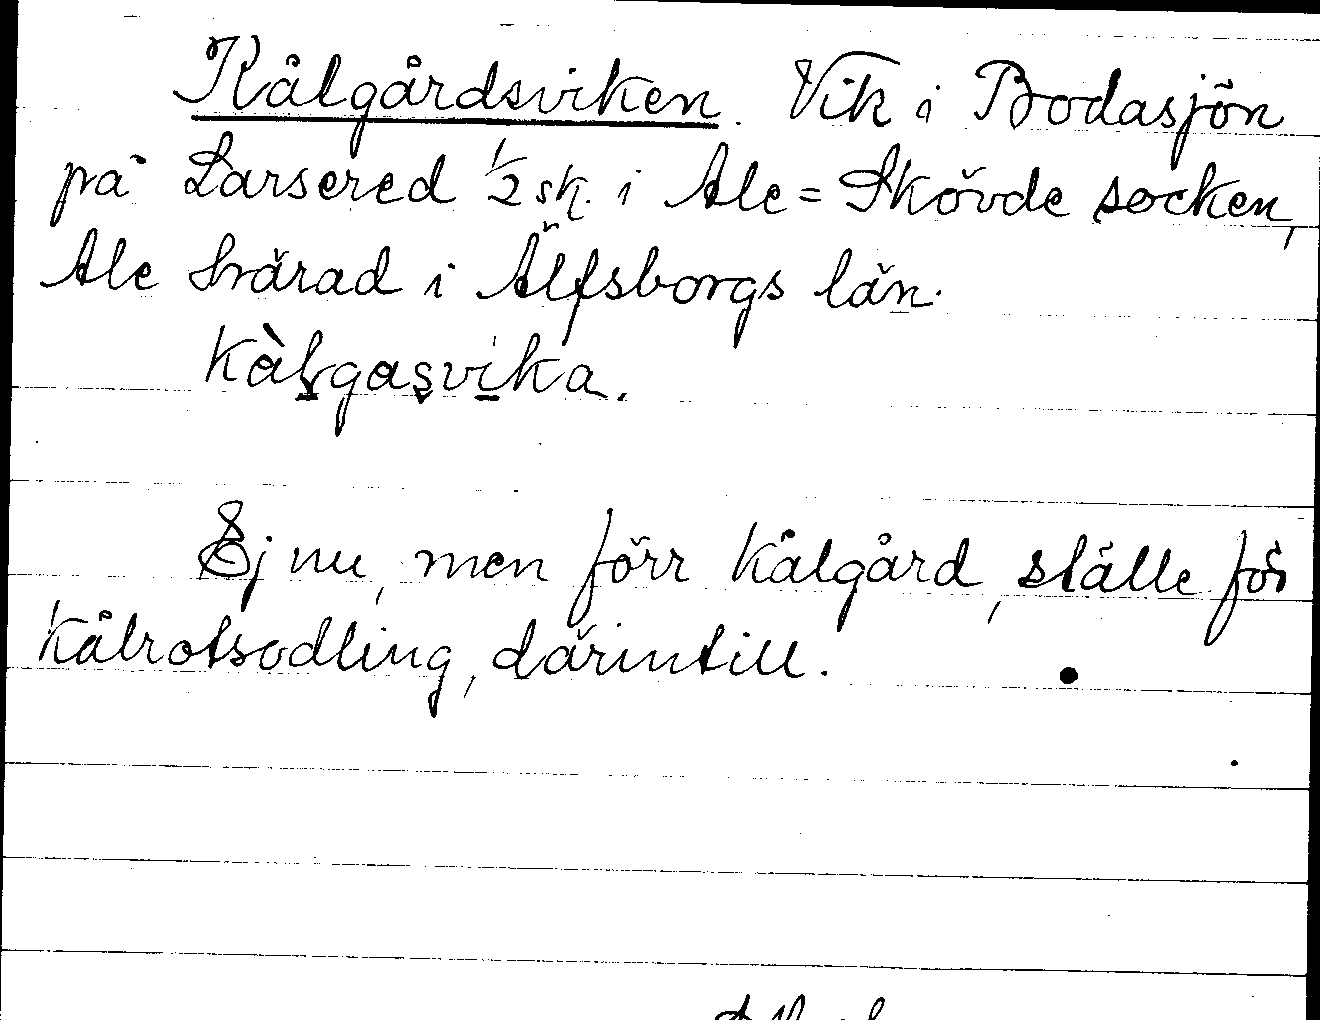 Kålgårdsviken. Vik i Bodasjön
på Larsered 1/2 sk. i Ale=Skövde socken,
Ale härad i Älfsborgs län.
Kàlgasvika.
Ej nu, men förr kålgård, ställe för
kålrotsodling, därintill.